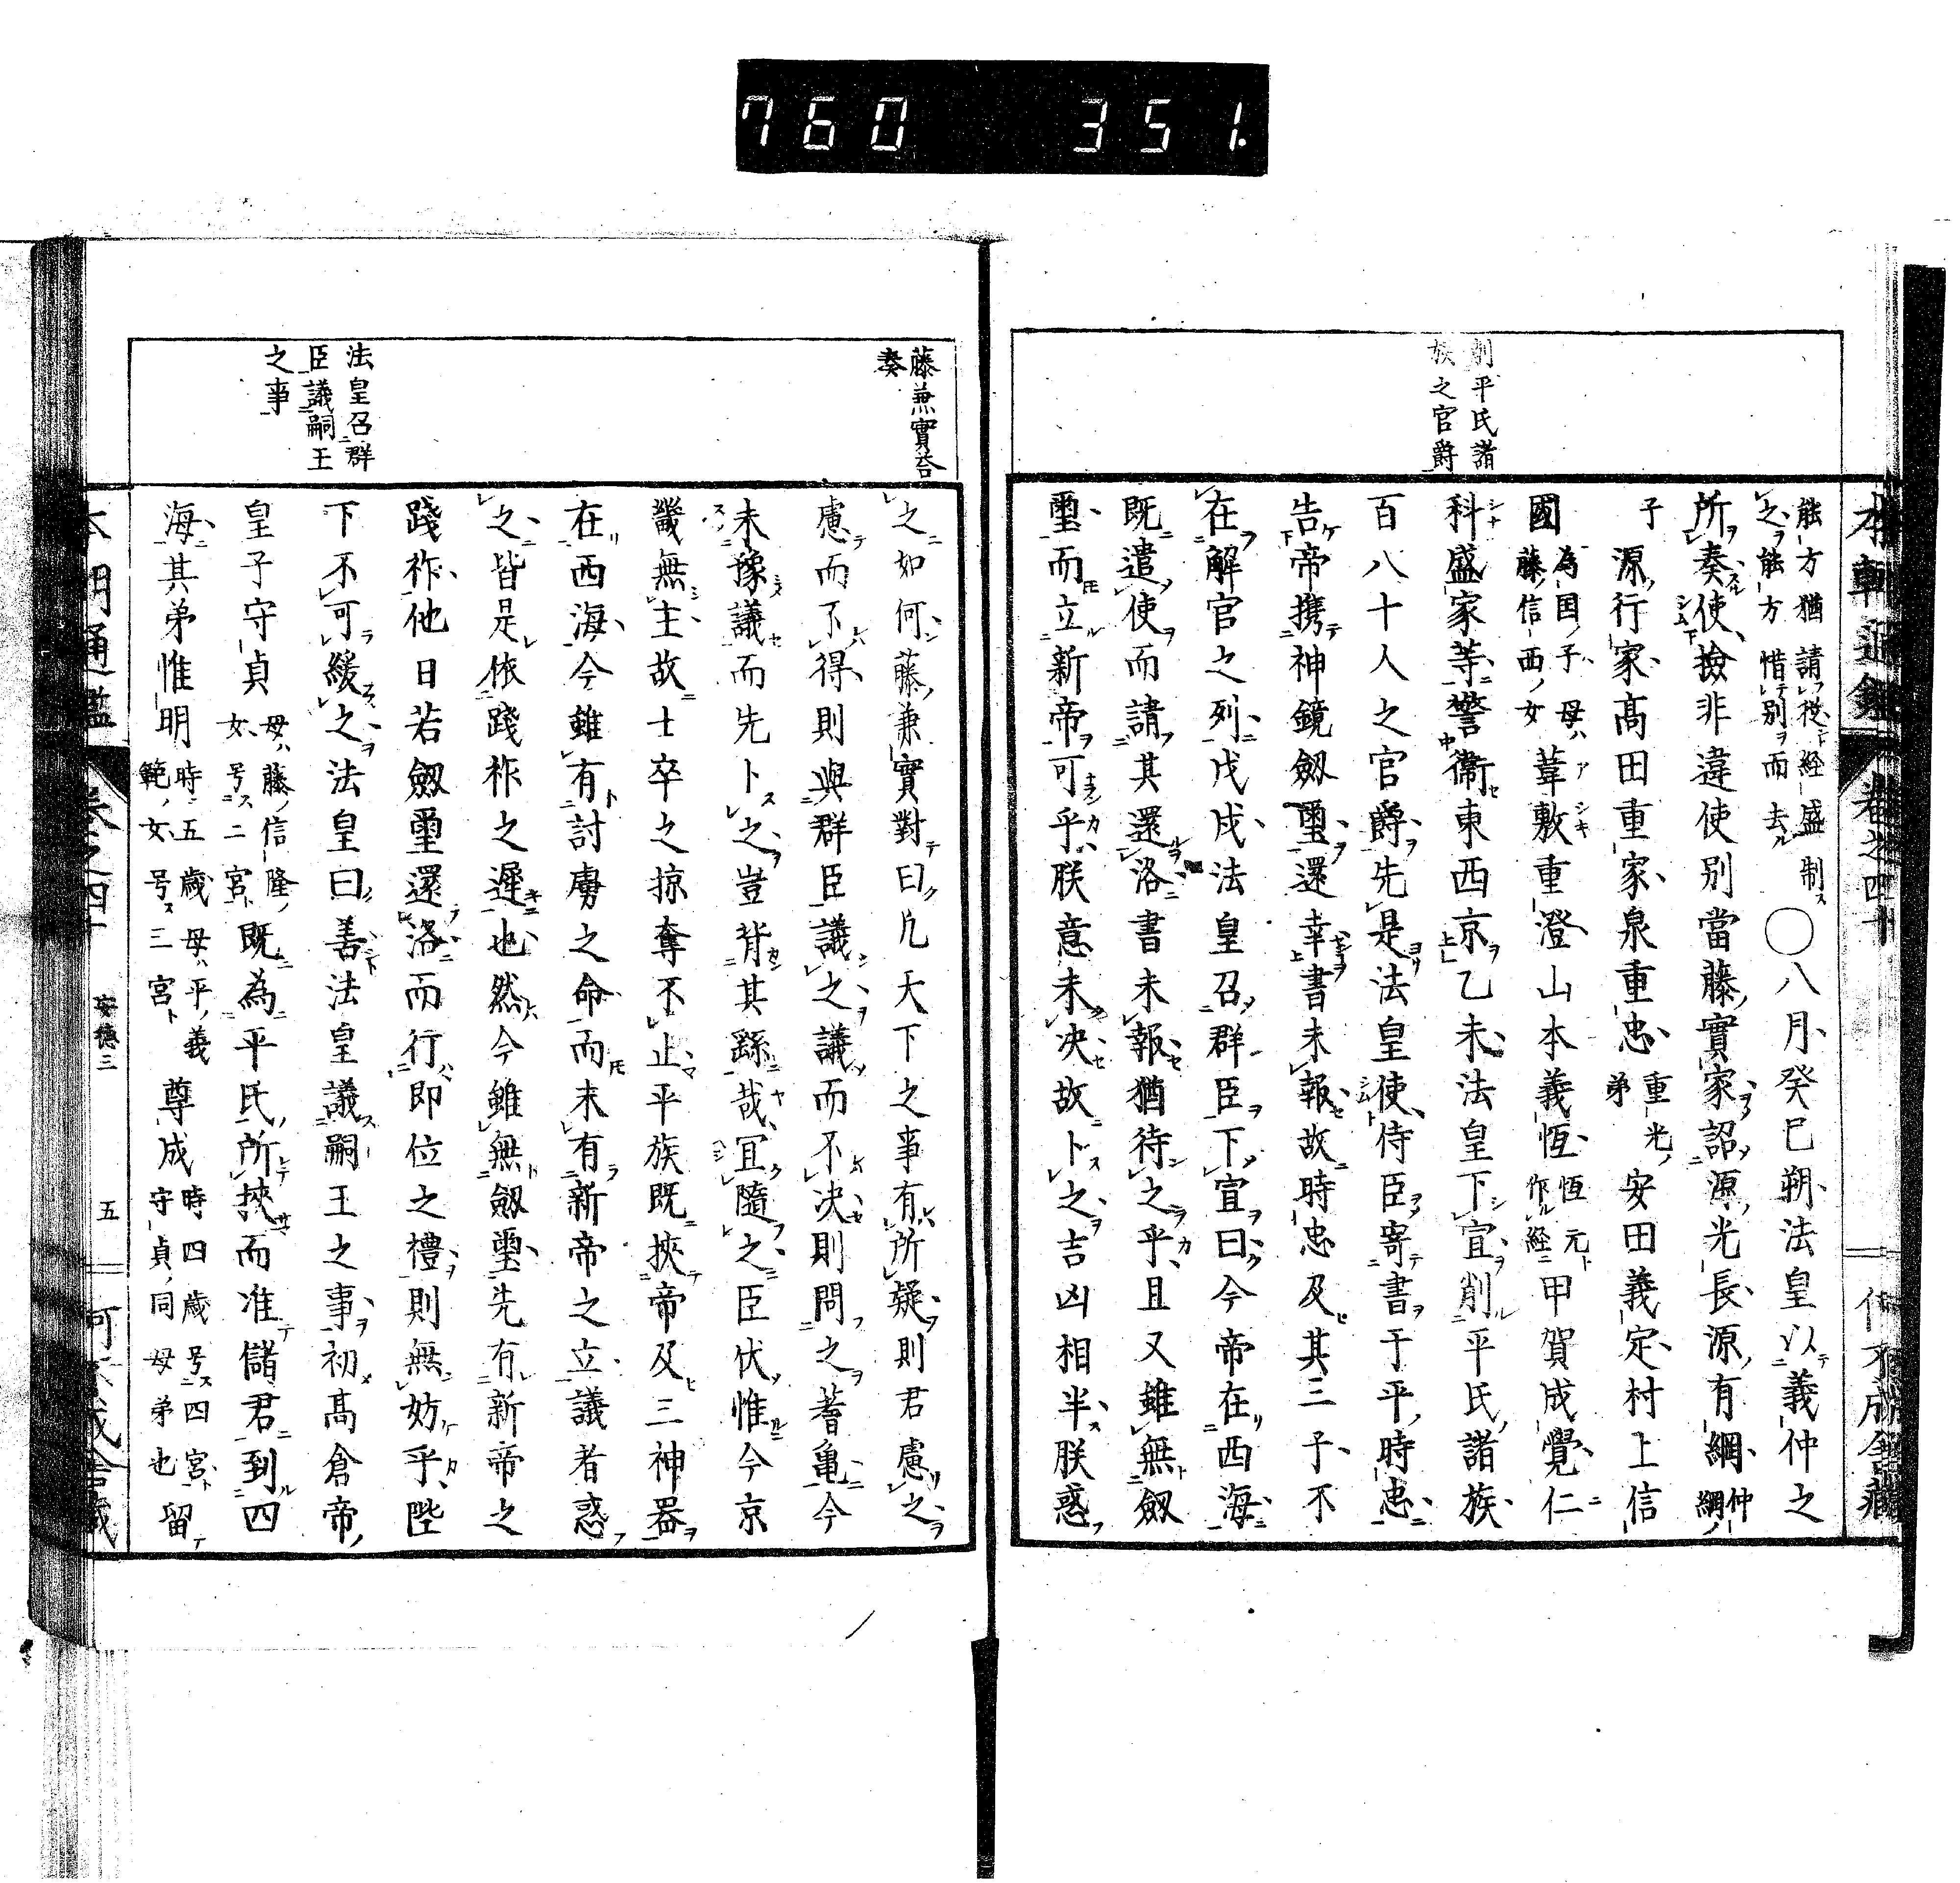 760 351.
削平氏諸
族之官爵
能方猶請從経盛制
之能方惜別而去
〇八月癸巳朔法皇以義仲之
所奏使撿非違使別當藤實家詔源光長源有綱仲綱
子源行家髙田重家泉重忠重光弟安田義定村上信
國為国子母藤信西女葦敷重澄山本義恆恆元作経甲賀成覺仁
科盛家等警衞東西京乙未法皇下宣削平氏諸族
百八十人之官爵先是法皇使侍臣寄書于平時忠
告帝携神鏡劔璽還幸書未報故時忠及其三子不
在解官之列戊戌法皇召群臣下宣曰今帝在西海
既遣使而請其還洛書未報猶待之乎且又雖無劔
璽而立新帝可乎朕意未决故卜之吉凶相半朕惑
藤兼實荅
奏
法皇召群
臣議嗣王
之事
之如何藤兼實對曰凢天下之事有所疑則君慮之
慮而不得則與群臣議之議而不决則問之蓍亀今
未豫議而先卜之豈背其繇哉宜隨之臣伏惟今京
畿無主故士卒之掠奪不止平族既挾帝及三神器
在西海今雖有討虜之命而未有新帝之立議者惑
之皆是依踐祚之遲也然今雖無劔璽先有新帝之
踐祚他日若劔璽還洛而行即位之禮則無妨乎陛
下不可緩之法皇曰善法皇議嗣王之事初髙倉帝
皇子守貞母藤信隆女号二宮既為平氏所挾而准儲君到四
海其弟惟明時五歲母平義範女号三宮尊成時四歲号四宮守貞同母弟也留
本朝通鑑
卷之四十
安德三
五